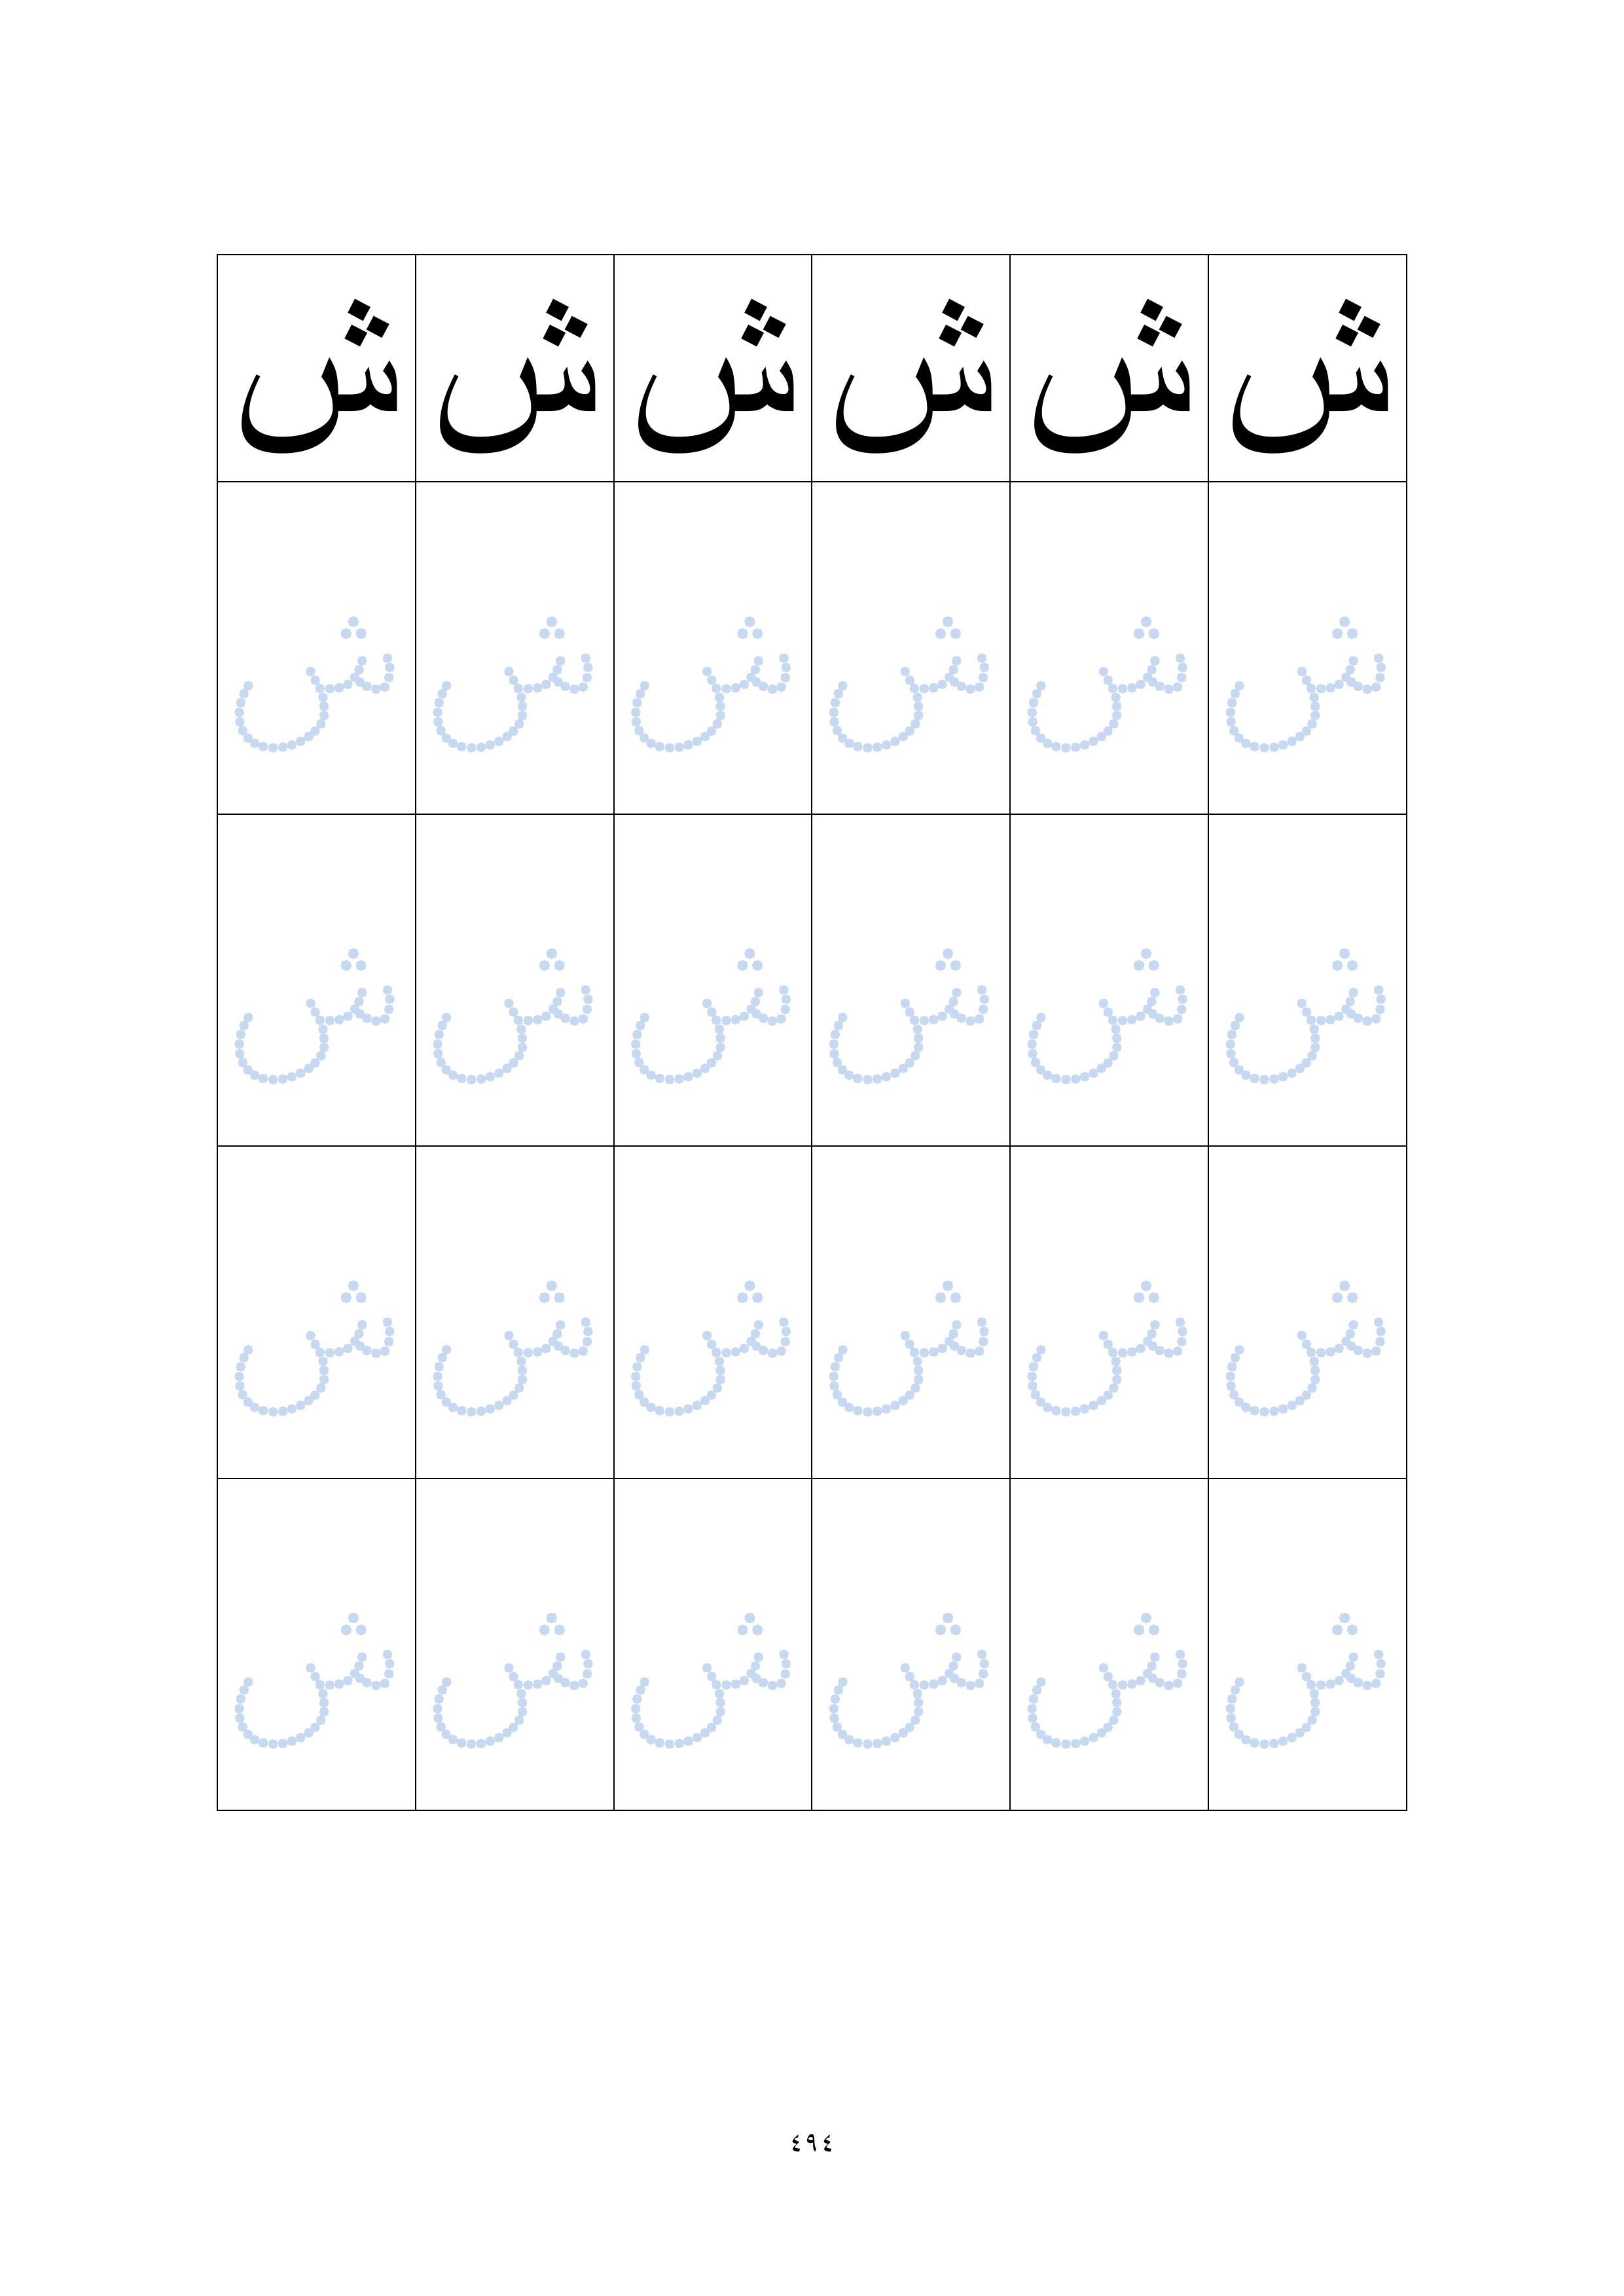 ش ش ش ش ش ش
ش ش ش ش ش ش
ش ش ش ش ش ش
ش ش ش ش ش ش
ش ش ش ش ش ش
٤٩٤